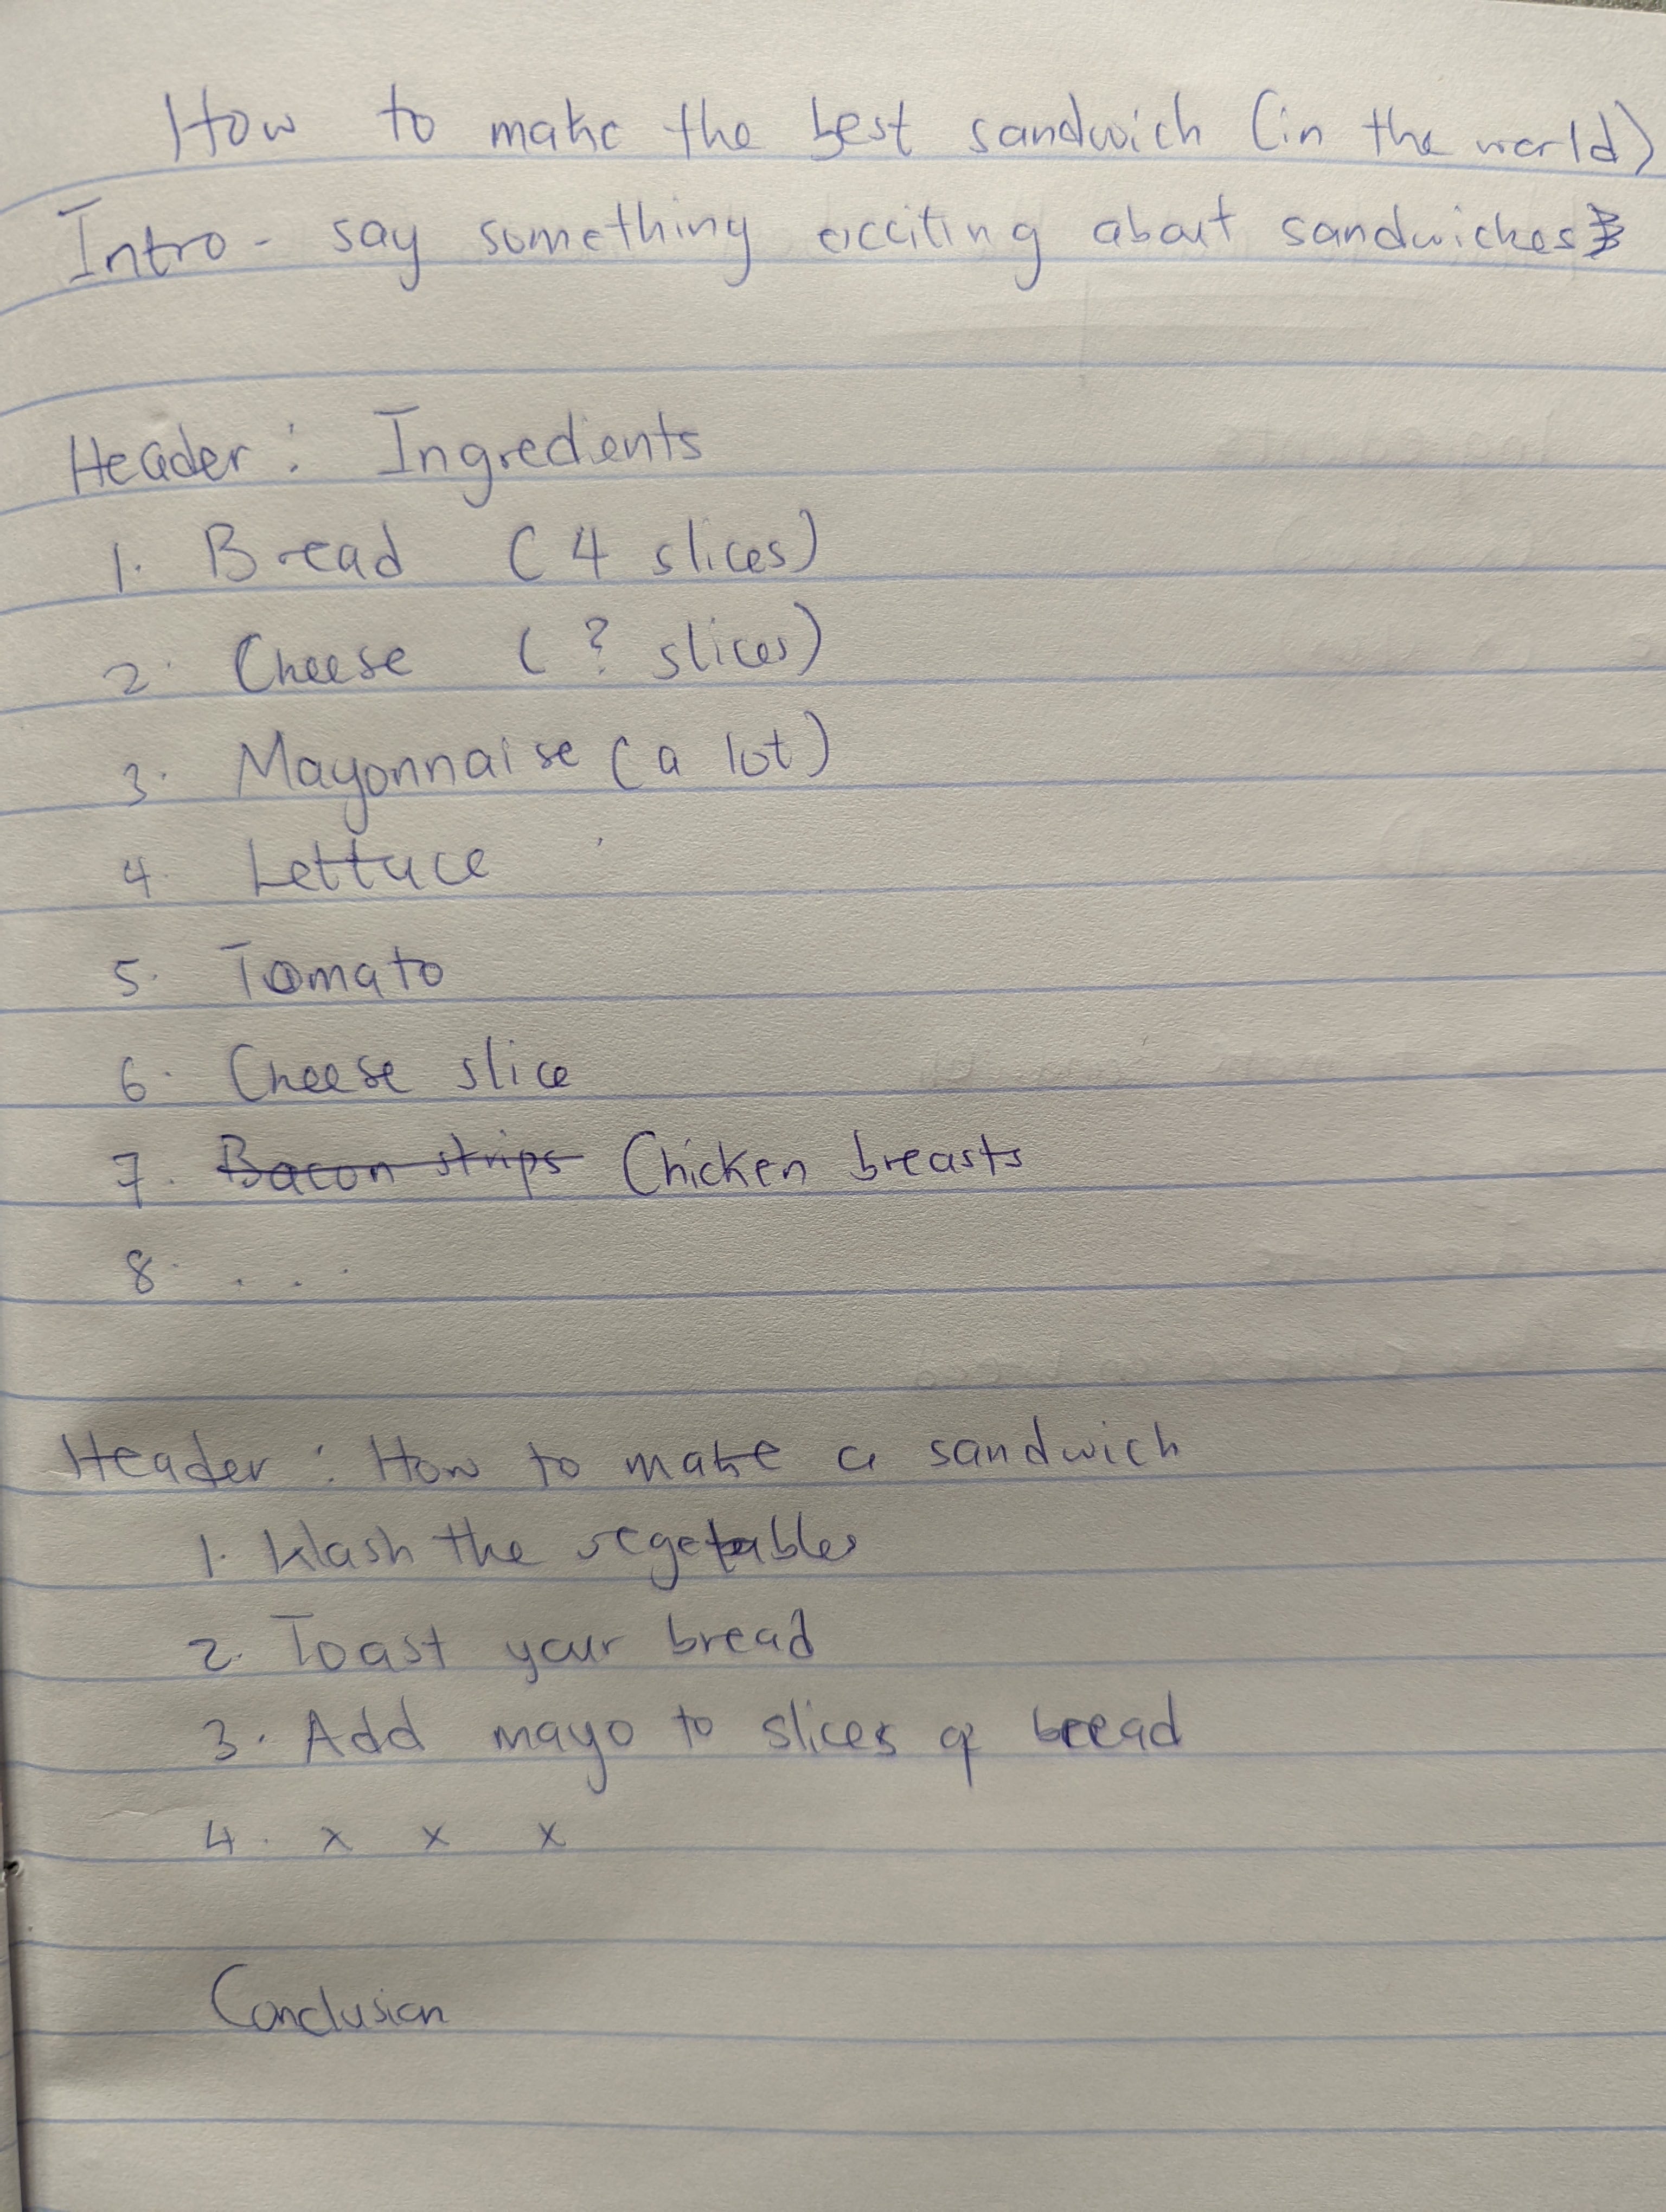 How to make the best sandwich (in the world)
Intro - say something exciting about sandwiches
Header : Ingredients
1. Bread ( 4 slices)
2. Cheese ( ? slices)
3. Mayonnaise (a lot)
4. Lettuce
5. Tomato
6. Cheese slice
7. Bacon strips Chicken breasts
8. . . .
Header : How to make a sandwich
1. Wash the vegetables
2. Toast your bread
3. Add mayo to slices of bread
4. x x x
Conclusion